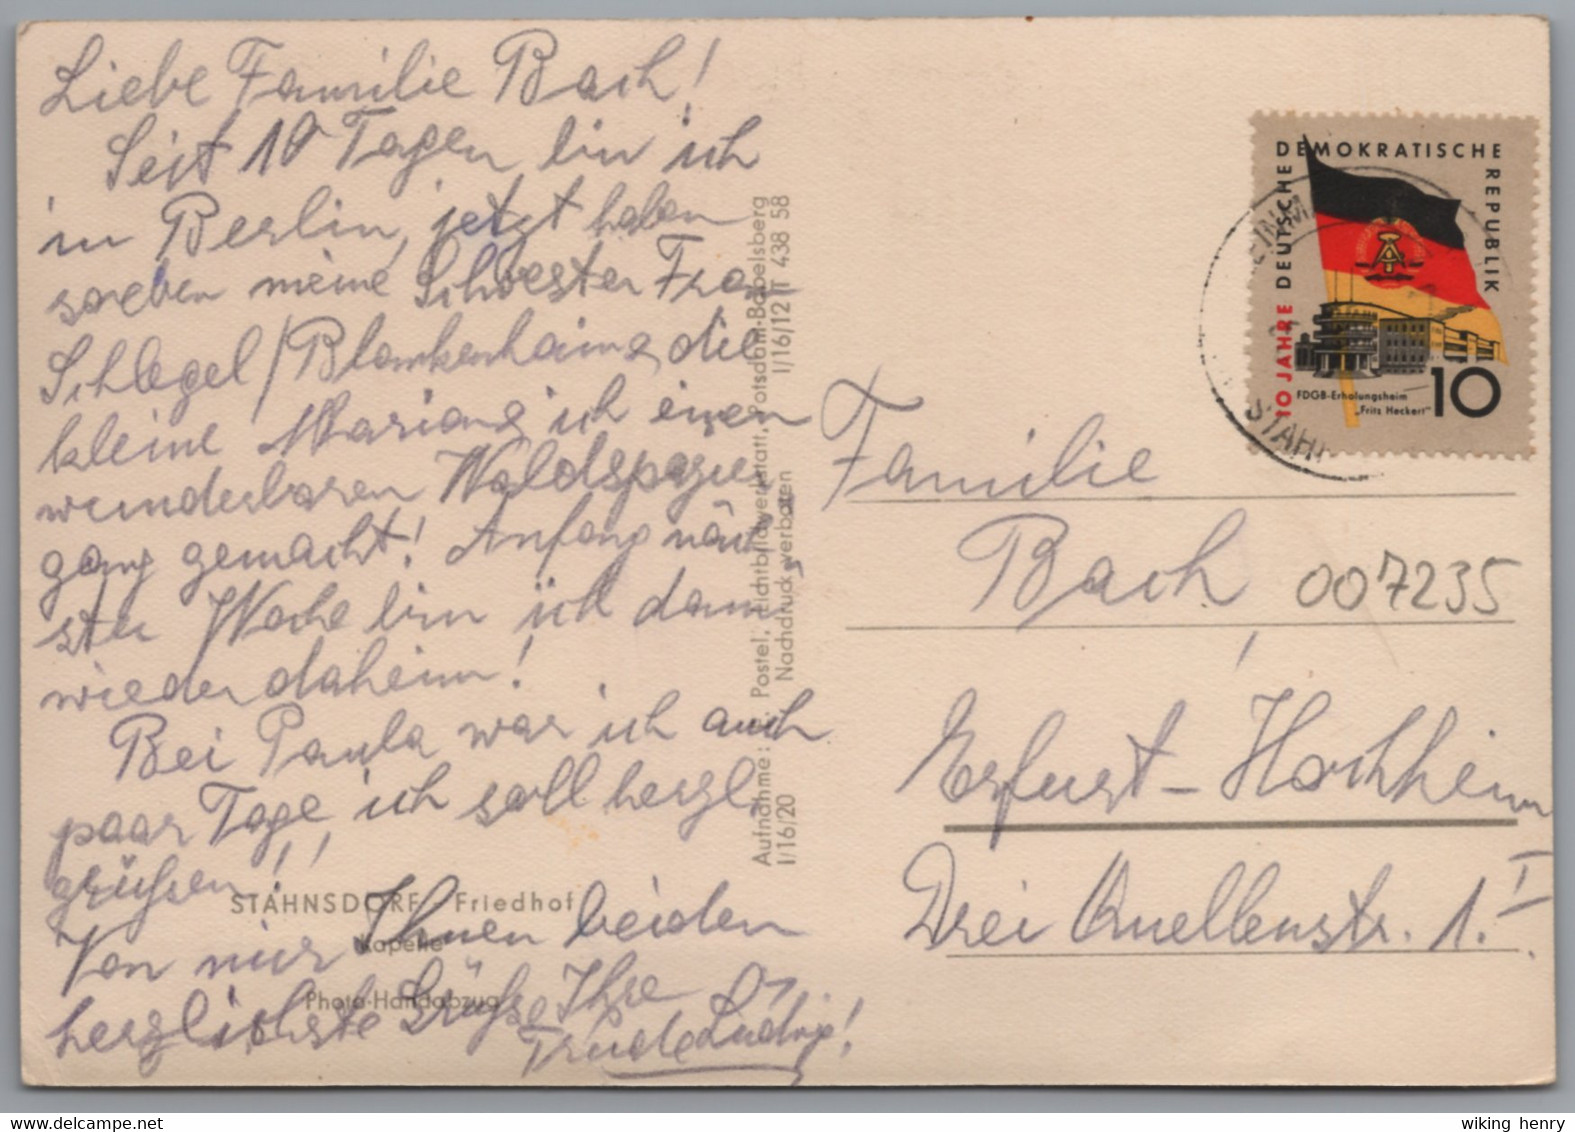 Liebe Familie Bach!
Seit 10 Tagen bin ich
in Berlin, jetzt haben
soeben meine Schwester Frau
Schlegel/Blankenhain, die
kleine Mariane, ich einen
wunderbaren Waldspazier-
gang gemacht! Anfang näch-
ster Woche bin ich dann
wieder daheim!
Bei Paula war ich auch
paar Tage, ich soll herzl.
grüßen!
Von mir Ihnen beiden
herzlichste Grüße Ihre
Trude Ludwig!
STAHNSDORF - Friedhof
Kapelle
Photo-Handabzug
Aufnahme: Postel, Lichtbildwerkstatt, Potsdam-Babelsberg
I/16/20 Nachdruck verboten I/16/12 T 438 58
10 JAHRE DEUTSCHE DEMOKRATISCHE REPUBLIK
FDGB-Erholungsheim
„Fritz Heckert"
10
STAHN
Familie
Bach
007235
Erfurt-Hochheim
Drei Quellenstr. 1. I
wiking henry